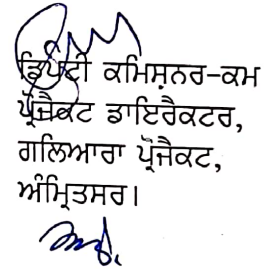 ਡਿਪਟੀ ਕਮਿਸ਼ਨਰ-ਕਮ
ਪ੍ਰੋਜੈਕਟ ਡਾਇਰੈਕਟਰ,
ਗਲਿਆਰਾ ਪ੍ਰੋਜੈਕਟ,
ਅੰਮ੍ਰਿਤਸਰ।